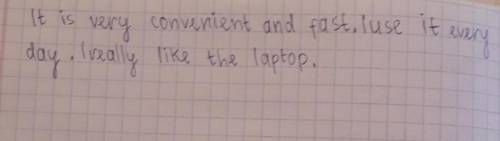 It is very convenient and fast. I use it every
day. I really like the laptop.